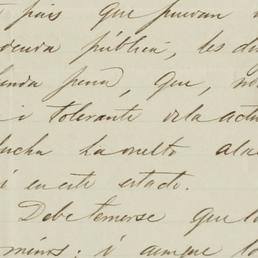 pais que puedan
pública, les du
pena, que, no
i tolerante de la actu
lucha ha vuelto a la
i en este estado.
Debe temerse que lo
minos: i aunque lo